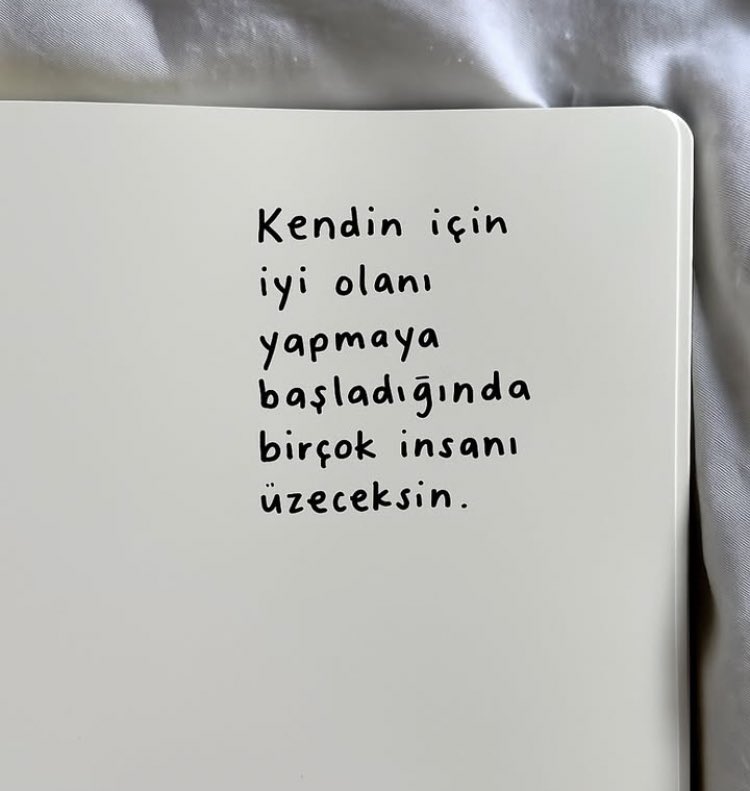 Kendin için
iyi olanı
yapmaya
başladığında
birçok insanı
üzeceksin.